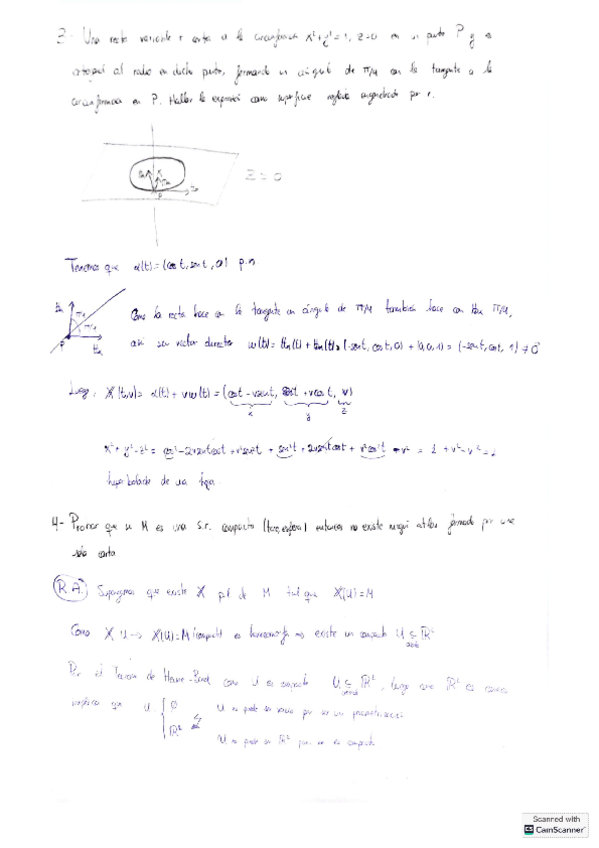 3- Una recta variable r corta a la circunferencia x²+y²=1, z=0 en un punto P y es
ortogonal al radio en dicho punto, formando un ángulo de π/4 con la tangente a la
circunferencia en P. Hallar la expresión como superficie reglada engendrada por r.
z=0
Tenemos que α(t)=(cost, sent, 0) p.n
π/4
π/4
P
Como la recta hace con la tangente un ángulo de π/4 también hace con π/4,
así su vector director w(t)= + = (-sent, cost, 0) + (0,0,1) = (-sent, cost, 1) ≠ 0
Luego, X(t,v)= α(t) + v w(t) = (cost - vsent, sent + vcost, v)
x y z
x²+y²-z² = cos²t - 2vsentcost + v²sen²t + sen²t + 2vsentcost + v²cos²t - v² = 1 + v² - v² = 1
hiperboloide de una hoja
4- Probar que si M es una s.r. compacta (toro, esfera) entonces no existe ningún atlas formado por una
sola carta
R.A. Supongamos que existe X p.l de M tal que X(U)=M
Como X U → X(U)=M compacto es homeomorfismo existe un compacto U ⊆ ℝ²
Por el Teorema de Heine-Borel como U es compacto U ⊆ ℝ², luego como ℝ² es conexo
implica que U: { ∅ U no puede ser vacío por ser una parametrización
ℝ² U no puede ser ℝ² pues no es compacto
Scanned with
CamScanner